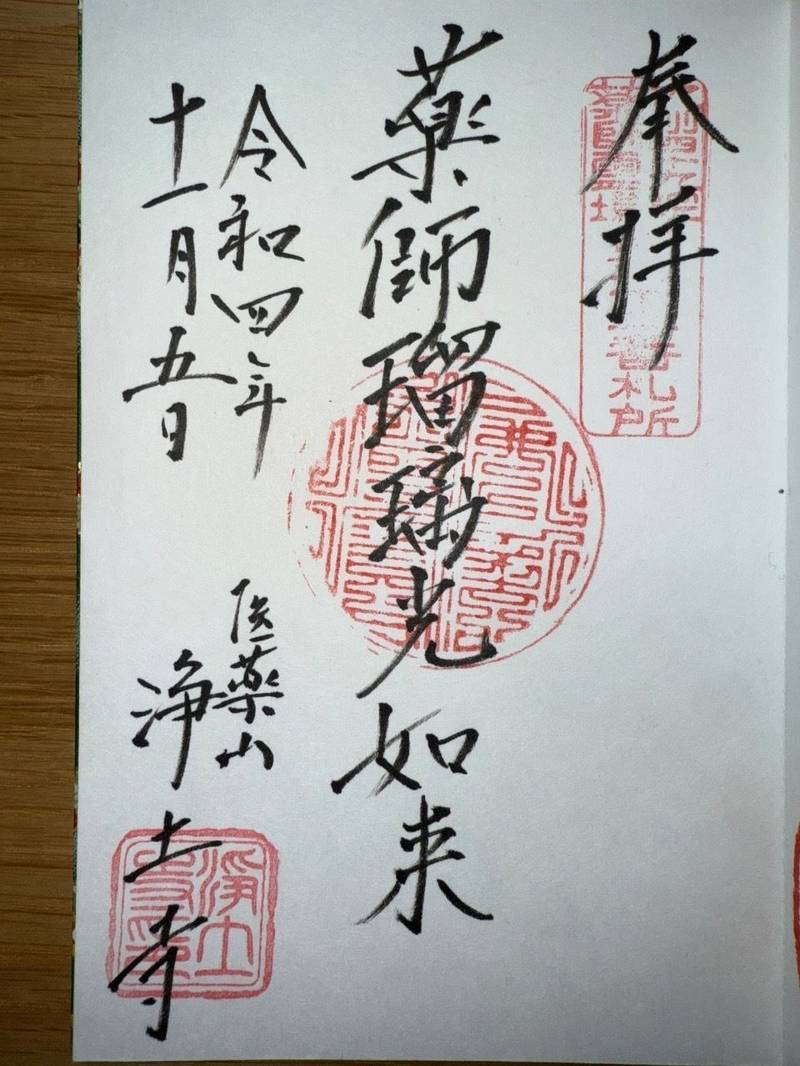 奉拝
薬師瑠璃光如来
令和四年
十一月五日
医薬山
浄土寺